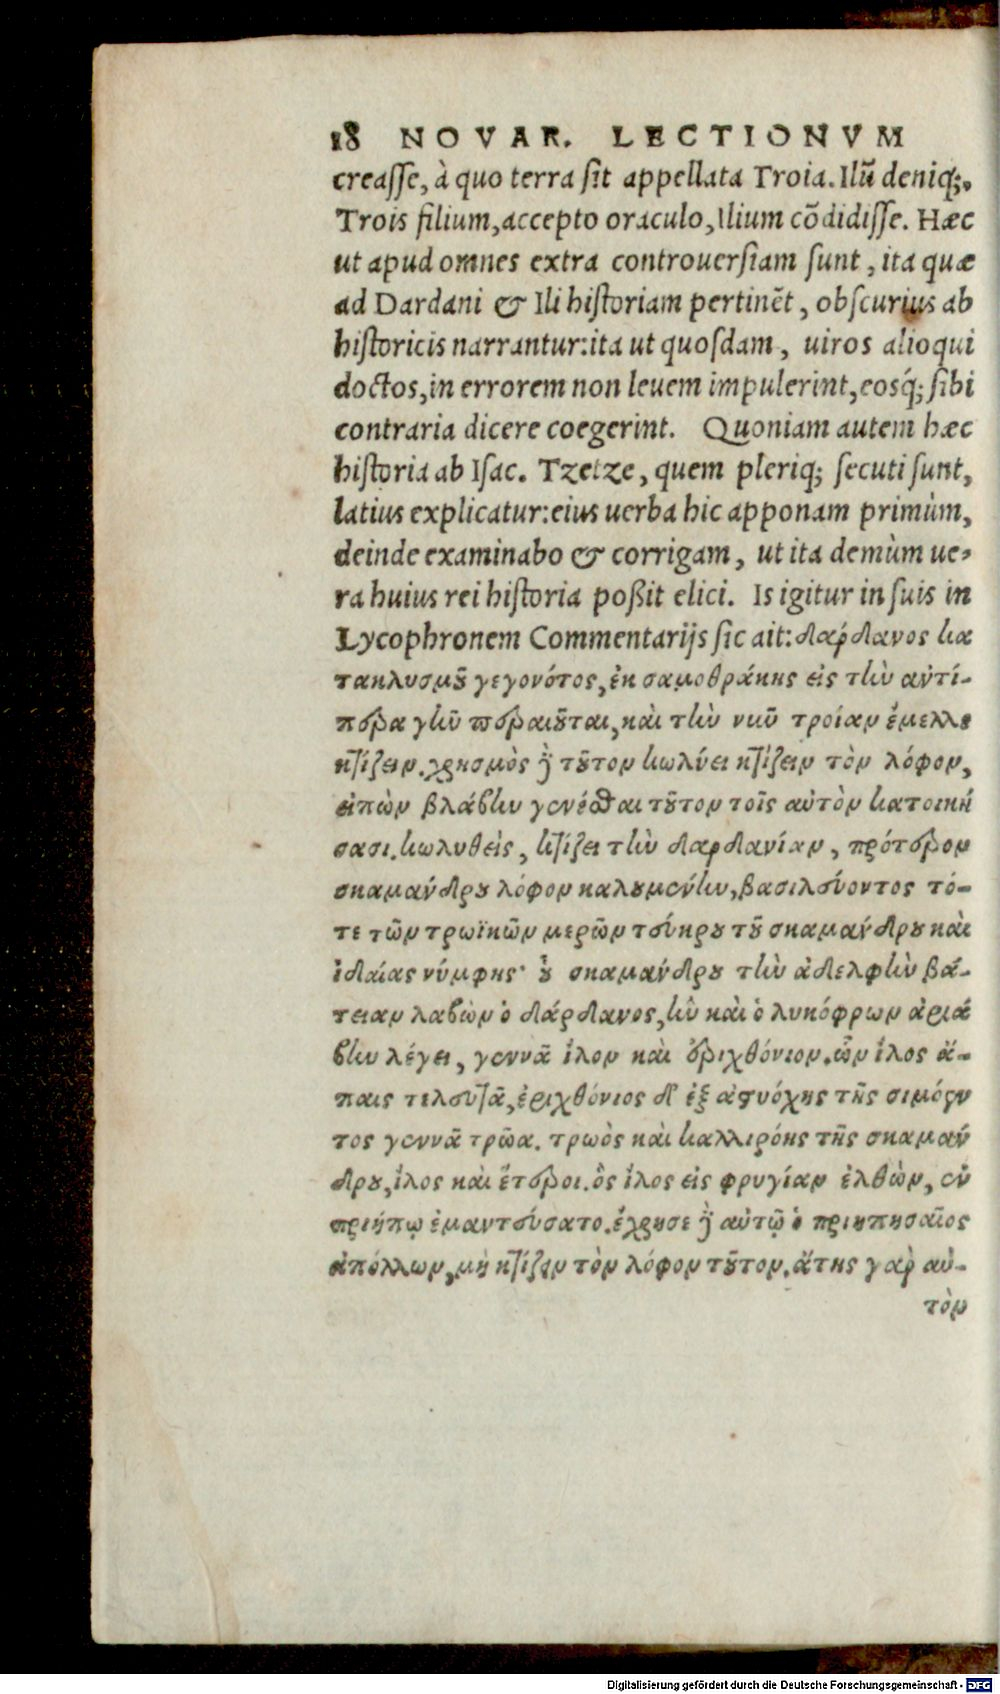 18 NOVAR. LECTIONVM
creasse, à quo terra sit appellata Troia. Ilũ deniq;,
Trois filium, accepto oraculo, Ilium cõdidisse. Hæc
ut apud omnes extra controuersiam sunt, ita quæ
ad Dardani & Ili historiam pertinẽt, obscurius ab
historicis narrantur: ita ut quosdam, uiros alioqui
doctos, in errorem non leuem impulerint, eosq́; sibi
contraria dicere coegerint. Quoniam autem hæc
historia ab Isac. Tzetze, quem pleriq; secuti sunt,
latius explicatur: eius uerba hic apponam primùm,
deinde examinabo & corrigam, ut ita demùm ue-
ra huius rei historia poßit elici. Is igitur in suis in
Lycophronem Commentarijs sic ait: δάρδανος κα
τακλυσμοῦ γεγονότος, ἐκ σαμοθράκης εἰς τὴν ἀντί-
περα γῆν περαιοῦται, καὶ τὴν νῦν τροίαν ἔμελλε
κτίζειν. χρησμὸς δὲ τοῦτον κωλύει κτίζειν τὸν λόφον,
εἰπὼν βλάβην γενέσθαι τοῦτον τοῖς αὐτὸν κατοική
σασι. κωλυθεὶς, κτίζει τὴν δαρδανίαν, πρότερον
σκαμάνδρου λόφον καλουμένην, βασιλεύοντος τό-
τε τῶν τρωϊκῶν μερῶν τεύκρου τοῦ σκαμάνδρου καὶ
ἰδαίας νύμφης· οὗ σκαμάνδρου τὴν ἀδελφὴν βά-
τειαν λαβὼν ὁ δάρδανος, ἣν καὶ ὁ λυκόφρων ἀρίσ
βην λέγει, γεννᾷ ἶλον καὶ ἐριχθόνιον. ὧν ἶλος ἄ-
παις τελευτᾷ, ἐριχθόνιος δ' ἐξ ἀστυόχης τῆς σιμόεν
τος γεννᾷ τρῶα. τρωὸς καὶ καλλιρόης τῆς σκαμάν
δρου, ἶλος καὶ ἕτεροι. ὃς ἶλος εἰς φρυγίαν ἐλθὼν, ἐν
πριήπῳ ἐμαντεύσατο. ἔχρησε δὲ αὐτῷ ὁ πριηπησαῖος
ἀπόλλων, μὴ κτίζειν τὸν λόφον τοῦτον. ἄτης γὰρ αὐ-
τὸν
Digitalisierung gefördert durch die Deutsche Forschungsgemeinschaft - DFG